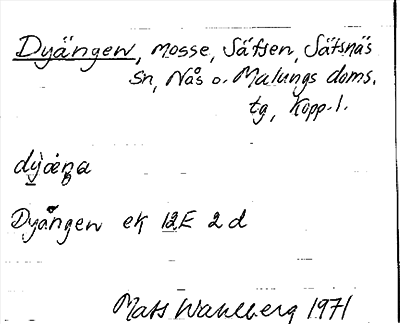 Dyängen, mosse, Säfsen, Säfsnäs
sn, Nås o. Malungs doms.
tg, Kopp. l.
Dyängen ek 12E 2 d
Mats Wahlberg 1971